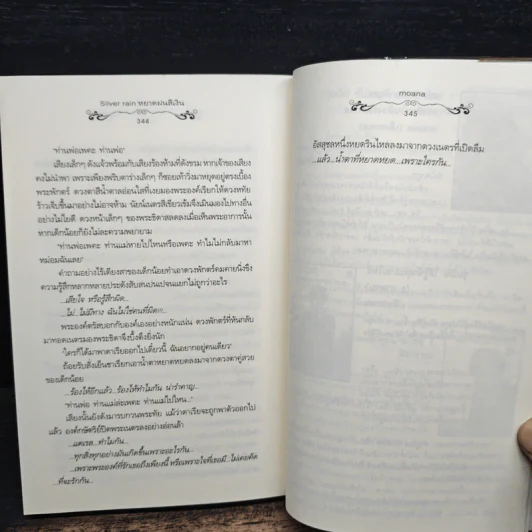 Silver rain หยาดฝนสีเงิน
344
"ท่านพ่อเพคะ ท่านพ่อ"
เสียงเล็กๆ ดังแจ้วพร้อมกับเสียงร้องห้ามที่ดังขรม หากเจ้าของเสียง
คงไม่นำพา เพราะเพียงพริบตาร่างเล็กๆ ก็ซอยเท้าวิ่งมาหยุดอยู่ตรงเบื้อง
พระพักตร์ ดวงตาสีน้ำตาลอ่อนใสที่เงยมองพระองค์เรียกให้ดวงหทัย
ร้าวเจ็บขึ้นมาอย่างไม่อาจห้าม นัยน์เนตรสีเขียวเข้มจึงเมินมองไปทางอื่น
อย่างไม่ไยดี ดวงหน้าเล็กๆ ของพระธิดาสลดลงเมื่อเห็นพระอาการนั้น
หากเด็กน้อยก็ยังไม่ละความพยายาม
"ท่านพ่อเพคะ ท่านแม่หายไปไหนหรือเพคะ ทำไมไม่กลับมาหา
หม่อมฉันเลย"
คำถามอย่างไร้เดียงสาของเด็กน้อยทำเอาดวงพักตร์คมคายนิ่งขึง
ความรู้สึกหลากหลายประดังสับสนปนเปจนแยกไม่ถูกว่าอะไร
...เสียใจ หรือรู้สึกผิด...
...ไม่...ไม่มีทาง ฉันไม่ใช่คนที่ผิด!!...
พระองค์ตรัสบอกกับองค์เองอย่างหนักแน่น ดวงพักตร์ที่หันกลับ
มาทอดเนตรมองพระธิดาจึงบึ้งตึงยิ่งนัก
"ใครก็ได้มาพาดาเรียออกไปเดี๋ยวนี้ ฉันอยากอยู่คนเดียว"
ถ้อยรับสั่งเย็นชาเรียกเอาน้ำตาหยาดหยดลงมาจากดวงตาคู่สวย
ของเด็กน้อย
...ร้องไห้อีกแล้ว...ร้องไห้ทำไมกัน น่ารำคาญ...
"ท่านพ่อ ท่านแม่ล่ะเพคะ ท่านแม่ไปไหน..."
เสียงนั้นยังดังมารบกวนพระทัย แม้ว่าดาเรียจะถูกพาตัวออกไป
แล้ว องค์กษัตริย์ปิดพระเนตรลงอย่างอ่อนล้า
...แดเรล...ทำไมกัน...
...ทุกสิ่งทุกอย่างมันเกิดขึ้นเพราะอะไรกัน...
...เพราะพระองค์ที่รักเธอถึงเพียงนี้ หรือเพราะใจที่เธอมี...ไม่เคยคิด
...ที่จะรักกัน...
moana
345
อัสสุชลหนึ่งหยดรินไหลลงมาจากดวงเนตรที่เปิดลืม
...แล้ว...น้ำตาที่หยาดหยด...เพราะใครกัน...